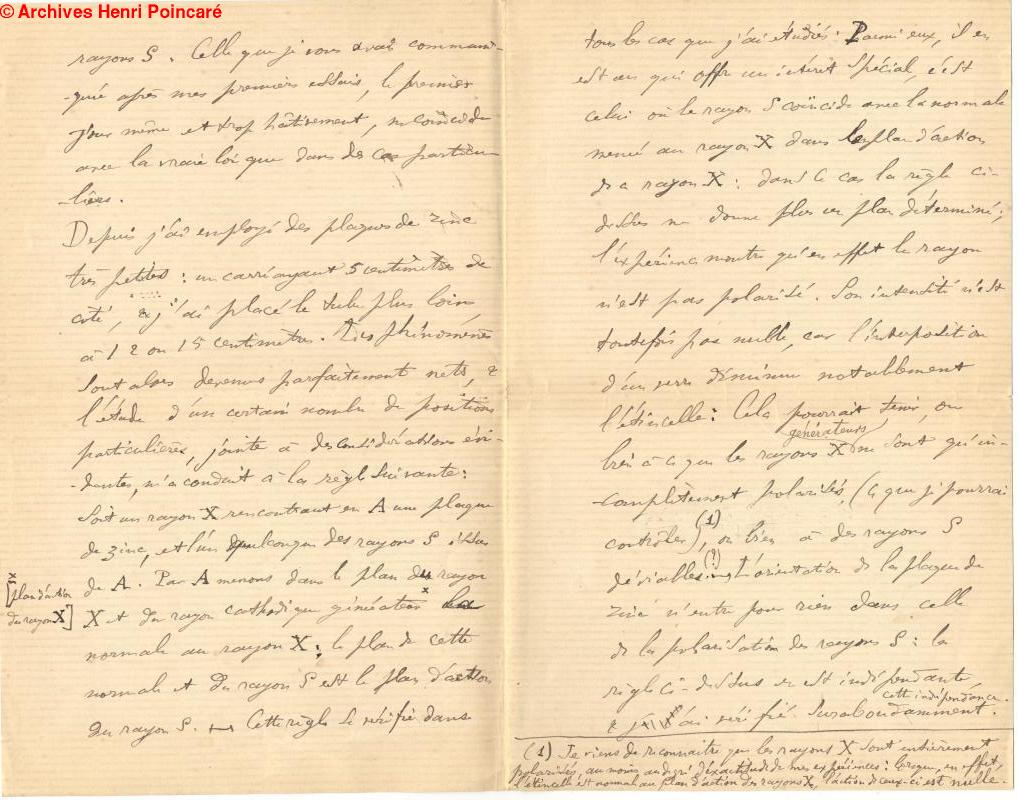 © Archives Henri Poincaré
rayons S. Celle que je vous avais communi-
-quée après mes premiers essais, le premier
jour même et trop hâtivement, ne coïncide
avec la vraie loi que dans des cas particu-
-liers.
Depuis j'ai employé des plaques de zinc
très petites : un carré ayant 5 centimètres de
côté, & j'ai placé le tube plus loin,
à 12 ou 15 centimètres. Les phénomènes
sont alors devenus parfaitement nets, &
l'étude d'un certain nombre de positions
particulières, jointe à des considérations évi-
-dentes, m'a conduit à la règle suivante :
Soit un rayon X rencontrant en A une plaque
de zinc, et l'un quelconque des rayons S issus
de A. Par A menons dans le plan du rayon
X et du rayon cathodique générateur x la
[x plan d'action
du rayon X]
normale au rayon X ; le plan de cette
normale et du rayon S est le plan d'action
du rayon S. — Cette règle se vérifie dans
tous les cas que j'ai étudiés. Parmi eux, il en
est un qui offre un intérêt spécial, c'est
celui où le rayon S coïncide avec la normale
menée au rayon X dans le plan d'action
de ce rayon X : dans ce cas la règle ci-
dessus ne donne plus un plan déterminé ;
l'expérience montre qu'en effet le rayon
n'est pas polarisé. Son intensité n'est
toutefois pas nulle, car l'interposition
d'un verre diminue notablement
l'étincelle : Cela pourrait tenir, ou
bien à ce que les rayons X générateurs ne sont qu'in-
-complètement polarisés, (ce que je pourrai
contrôler) (1), ou bien à des rayons S
déviables (?) L'orientation de la plaque de
zinc n'entre pour rien dans celle
de la polarisation des rayons S : la
règle ci-dessus en est indépendante,
& j'ai vérifié cette indépendance surabondamment.
(1) Je viens de reconnaître que les rayons X sont entièrement
polarisés, au moins au degré d'exactitude de mes expériences : lorsque, en effet,
l'étincelle est normale au plan d'action des rayons X, l'action de ceux-ci est nulle.